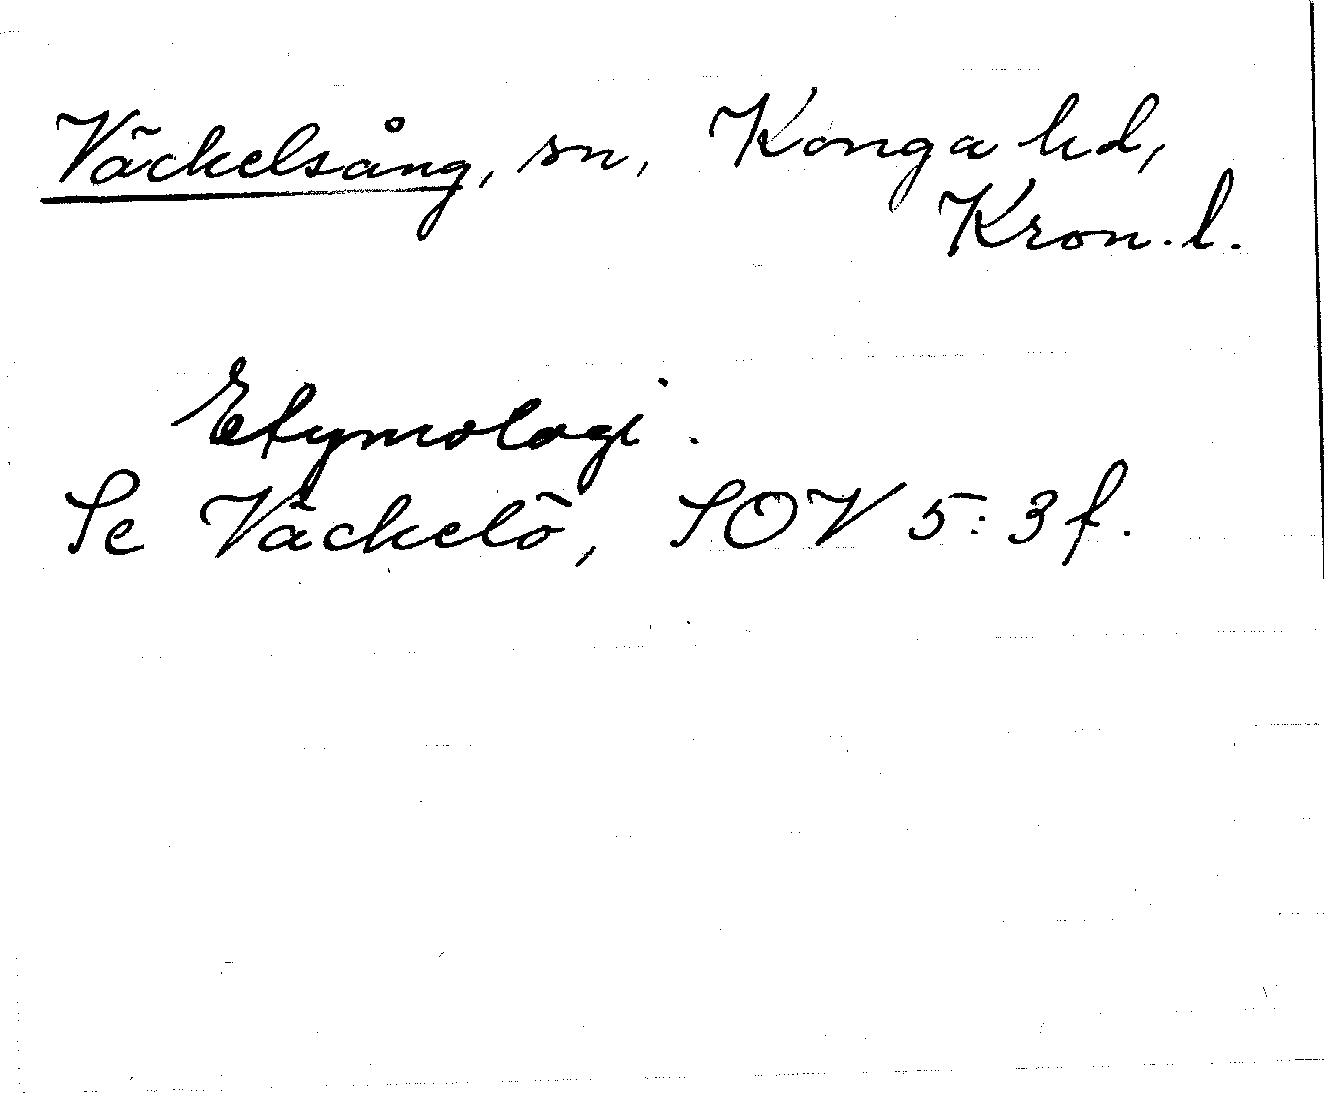 Väckelsång, sn, Konga hd,
Kron. l.
Etymologi.
Se Väckelö, SOV 5:3 f.